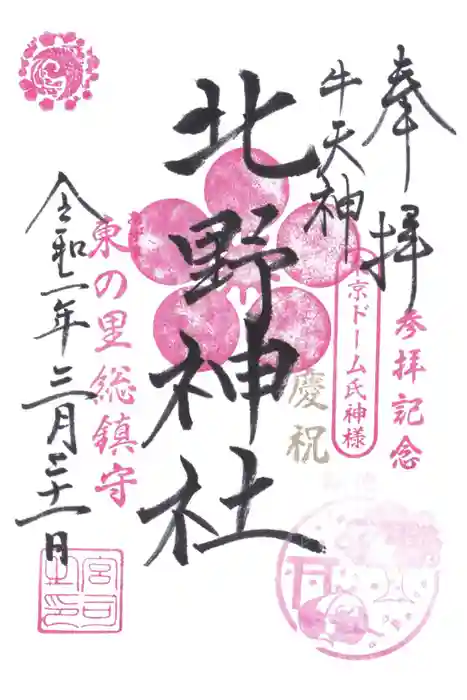 奉拝
参拝記念
牛天神
東京ドーム氏神様
慶祝
北野神社
東の里総鎮守
令和二年三月二十一日
宮司之印